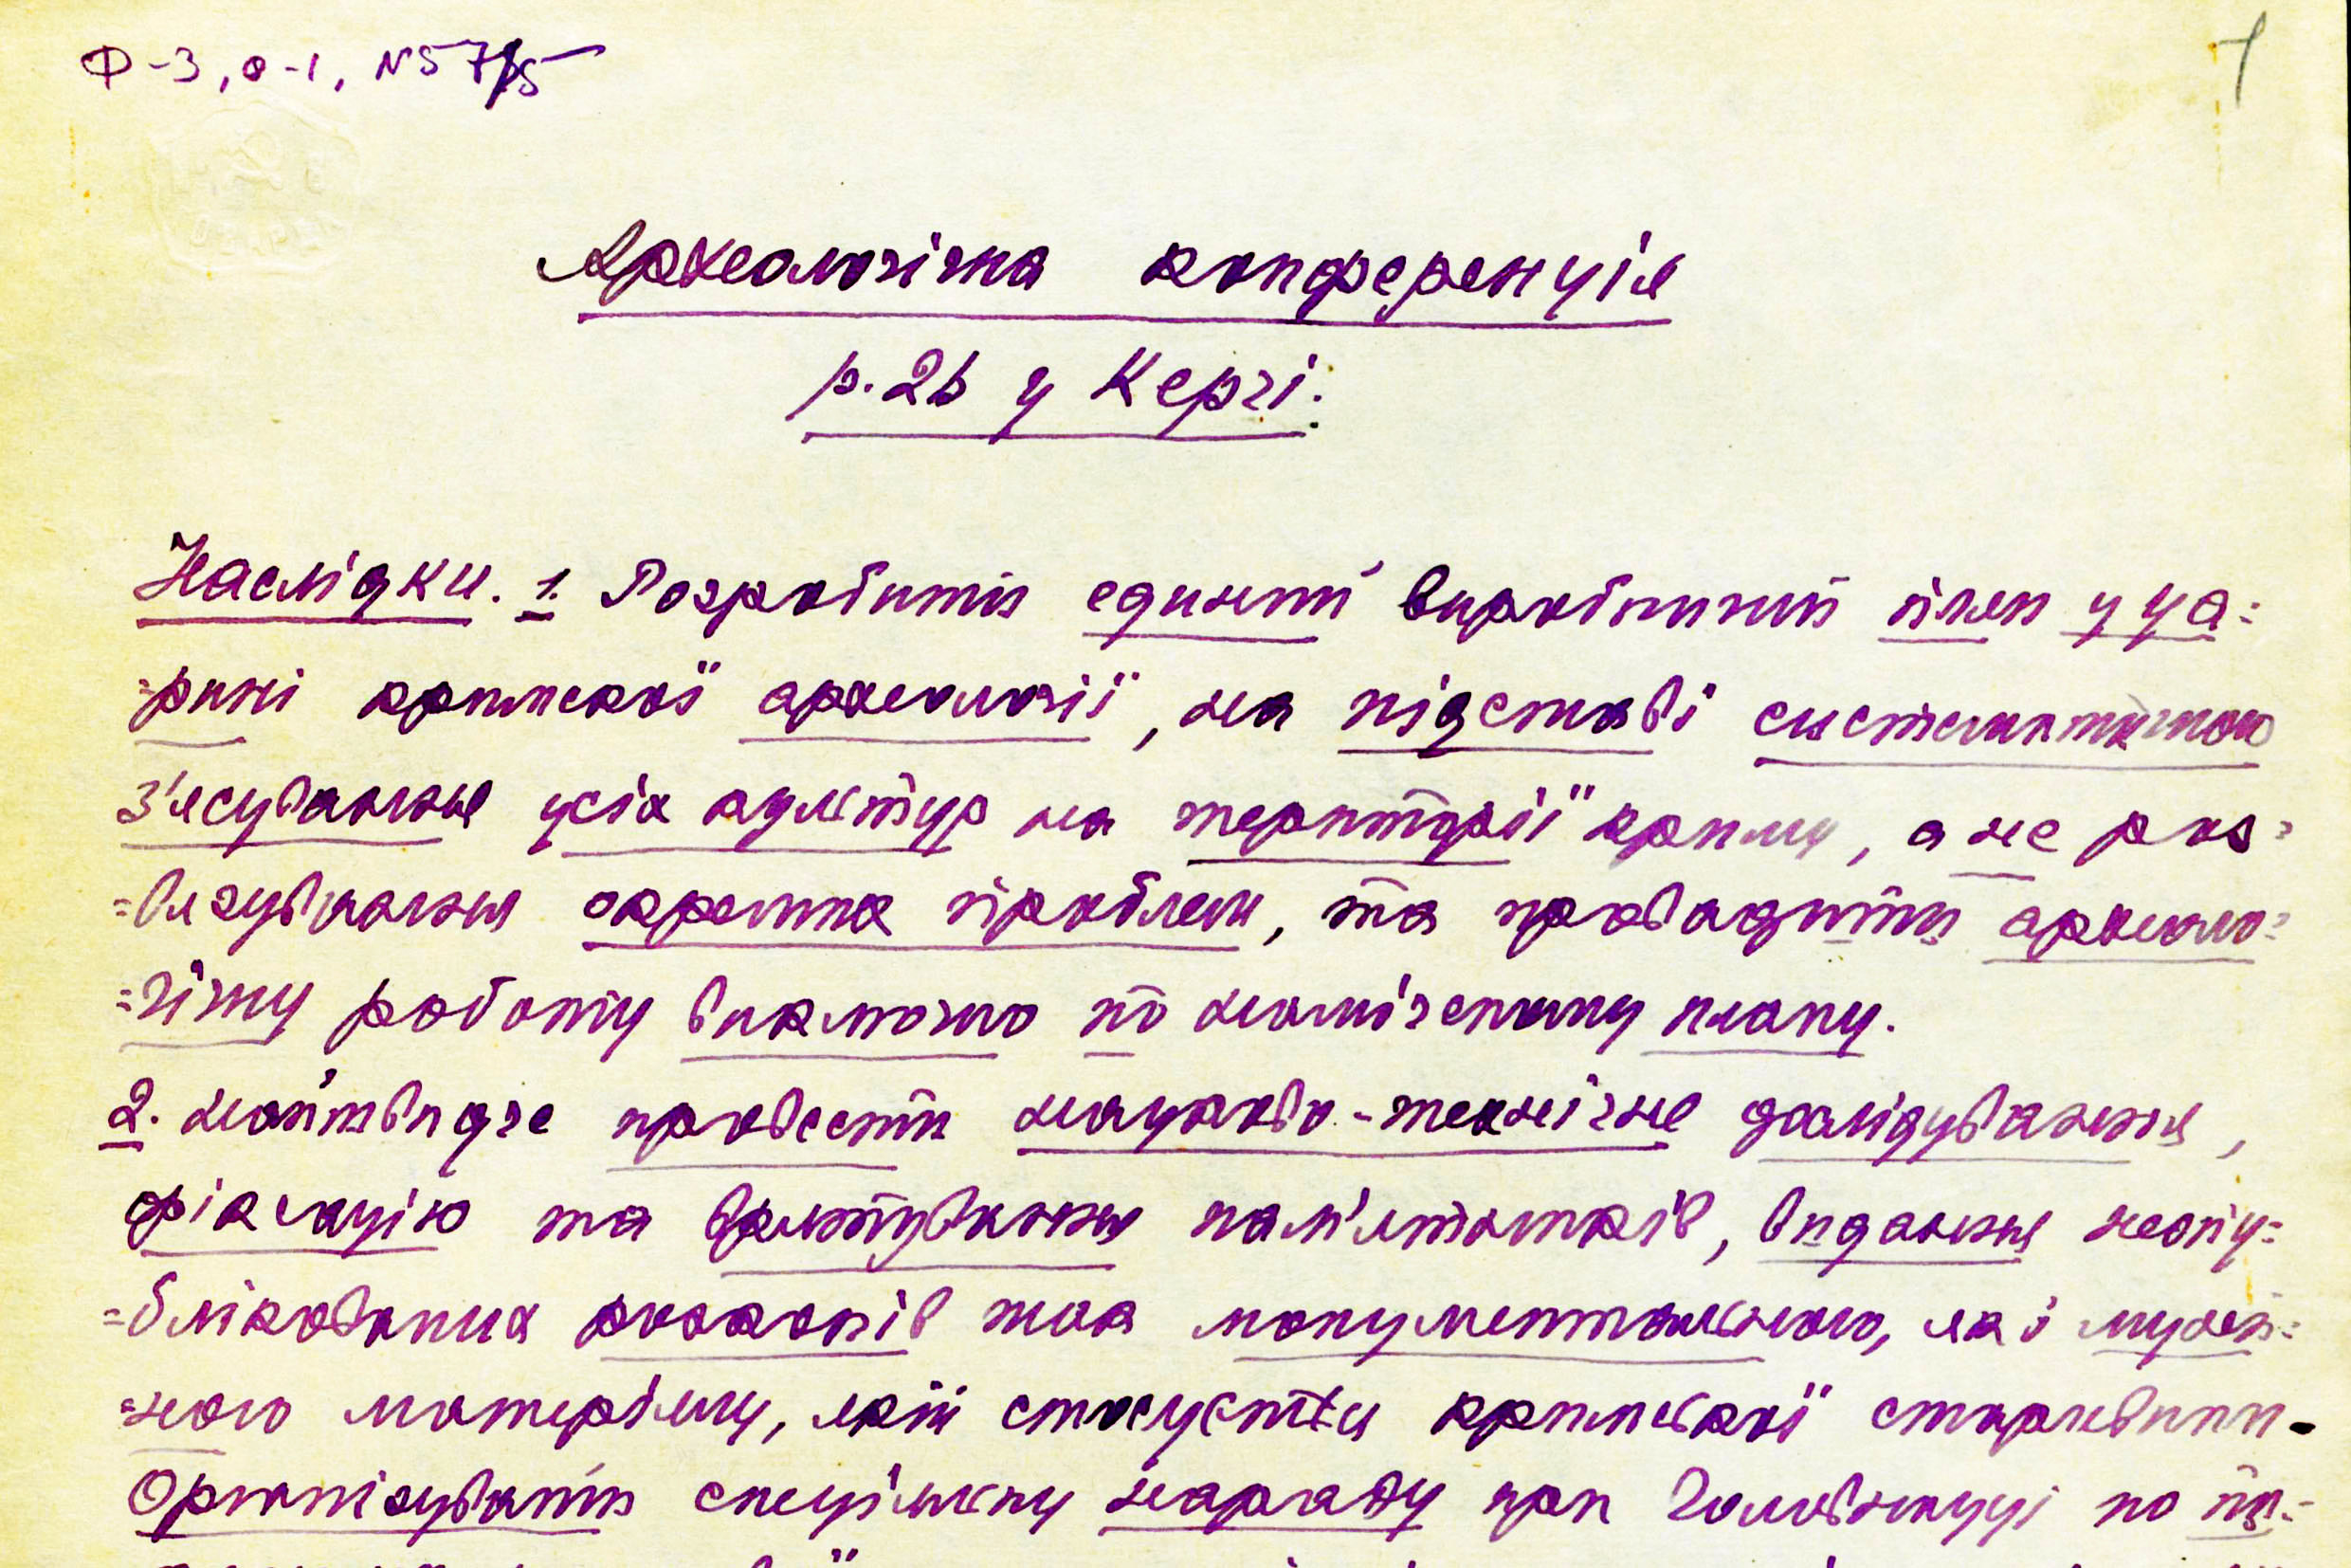 Ф-3, о-1, N 57/5
1
Археологічна конференція
р. 26 у Керчі.
Наслідки. 1. Розробити единий виробничий план у ца=
=рині кримскої археології, на підставі систематичного
з'ясування усіх культур на територіі Криму, а не роз=
=вязування окремих проблем, та провадити археоло=
=гічну роботу виключно по наміченому плану.
2. найшвидче провести науково-технічне дослідування,
фіксацію та врятування пам'ятників, видання неопу=
=блікованих розкопів так монументального, як і музей=
=ного матеріялу, який стосується кримської старовини.
Організувати спеціяльну нараду при Головнауці по пи=